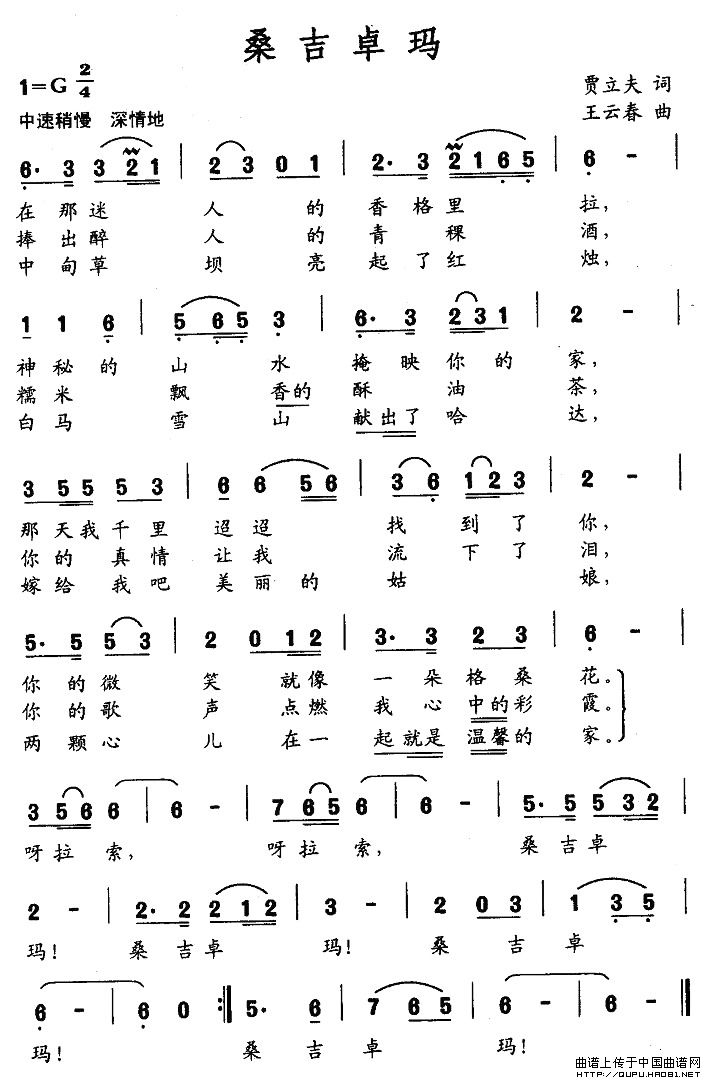 桑吉卓玛
1=G 2/4
贾立夫 词
中速稍慢 深情地
王云春 曲
6· 3 3 2 1 | 2 3 0 1 | 2· 3 2 1 6 5 | 6 - |
在那迷 人 的 香格里 拉,
捧出醉 人 的 青 稞 酒,
中甸草 坝 亮 起了红 烛,
1 1 6 | 5 6 5 3 | 6· 3 2 3 1 | 2 - |
神秘的 山 水 掩映你的 家,
糯米 飘 香的 酥 油 茶,
白马 雪 山 献出了哈 达,
3 5 5 5 3 | 6 6 5 6 | 3 6 1 2 3 | 2 - |
那天我千里 迢迢 找 到了 你,
你的 真情 让我 流 下了 泪,
嫁给 我吧 美丽的 姑 娘,
5· 5 5 3 | 2 0 1 2 | 3· 3 2 3 | 6 - |
你的微 笑 就像 一朵格桑 花。
你的歌 声 点燃 我心中的彩 霞。
两颗心 儿 在一 起就是温馨的 家。
3 5 6 6 | 6 - | 7 6 5 6 | 6 - | 5· 5 5 3 2 |
呀拉索, 呀拉索, 桑吉卓
2 - | 2· 2 2 1 2 | 3 - | 2 0 3 | 1 3 5 |
玛! 桑吉卓 玛! 桑 吉 卓
6 - | 6 0 :| 5· 6 | 7 6 5 | 6 - | 6 - |
玛! 桑 吉 卓 玛!
曲谱上传于中国曲谱网
HTTP://QUPU.HAO81.NET